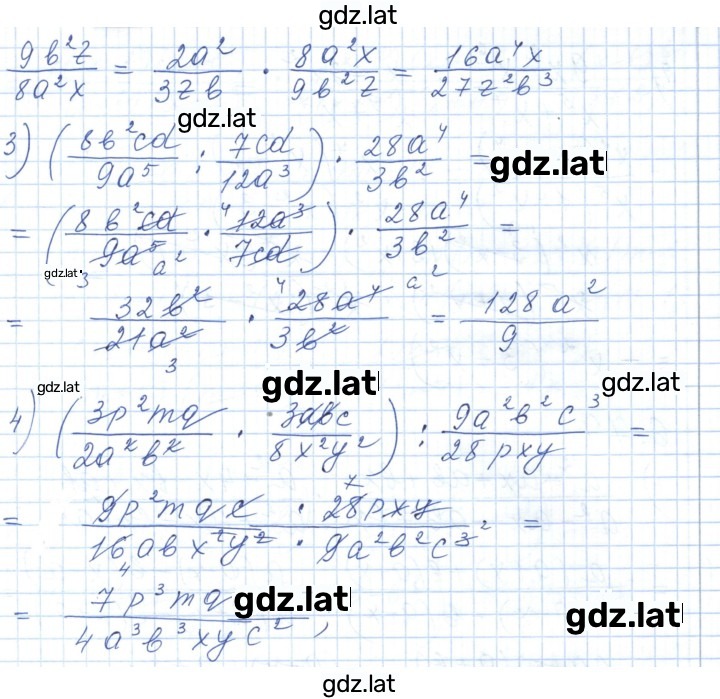 gdz.lat
9b²z/8a²x = 2a²/3zb · 8a²x/9b²z = 16a⁴x/27z²b³
gdz.lat
3) (8b²cd/9a⁵ : 7cd/12a³) · 28a⁴/3b² = gdz.lat
= (8b²cd/9a⁵ · 12a³/7cd) · 28a⁴/3b² =
4
gdz.lat 3 a²
= 32b²/21a² · 28a⁴/3b² = 128a²/9
4 a²
3
gdz.lat gdz.lat gdz.lat
4) (3p²mq/2a²b² · 3abc/8x²y²) : 9a²b²c³/28pxy =
= 9p²mqc · 28pxy/16abx²y² · 9a²b²c³ =
7
4 2
= 7p³mq/4a³b³xyc², gdz.lat gdz.lat
gdz.lat